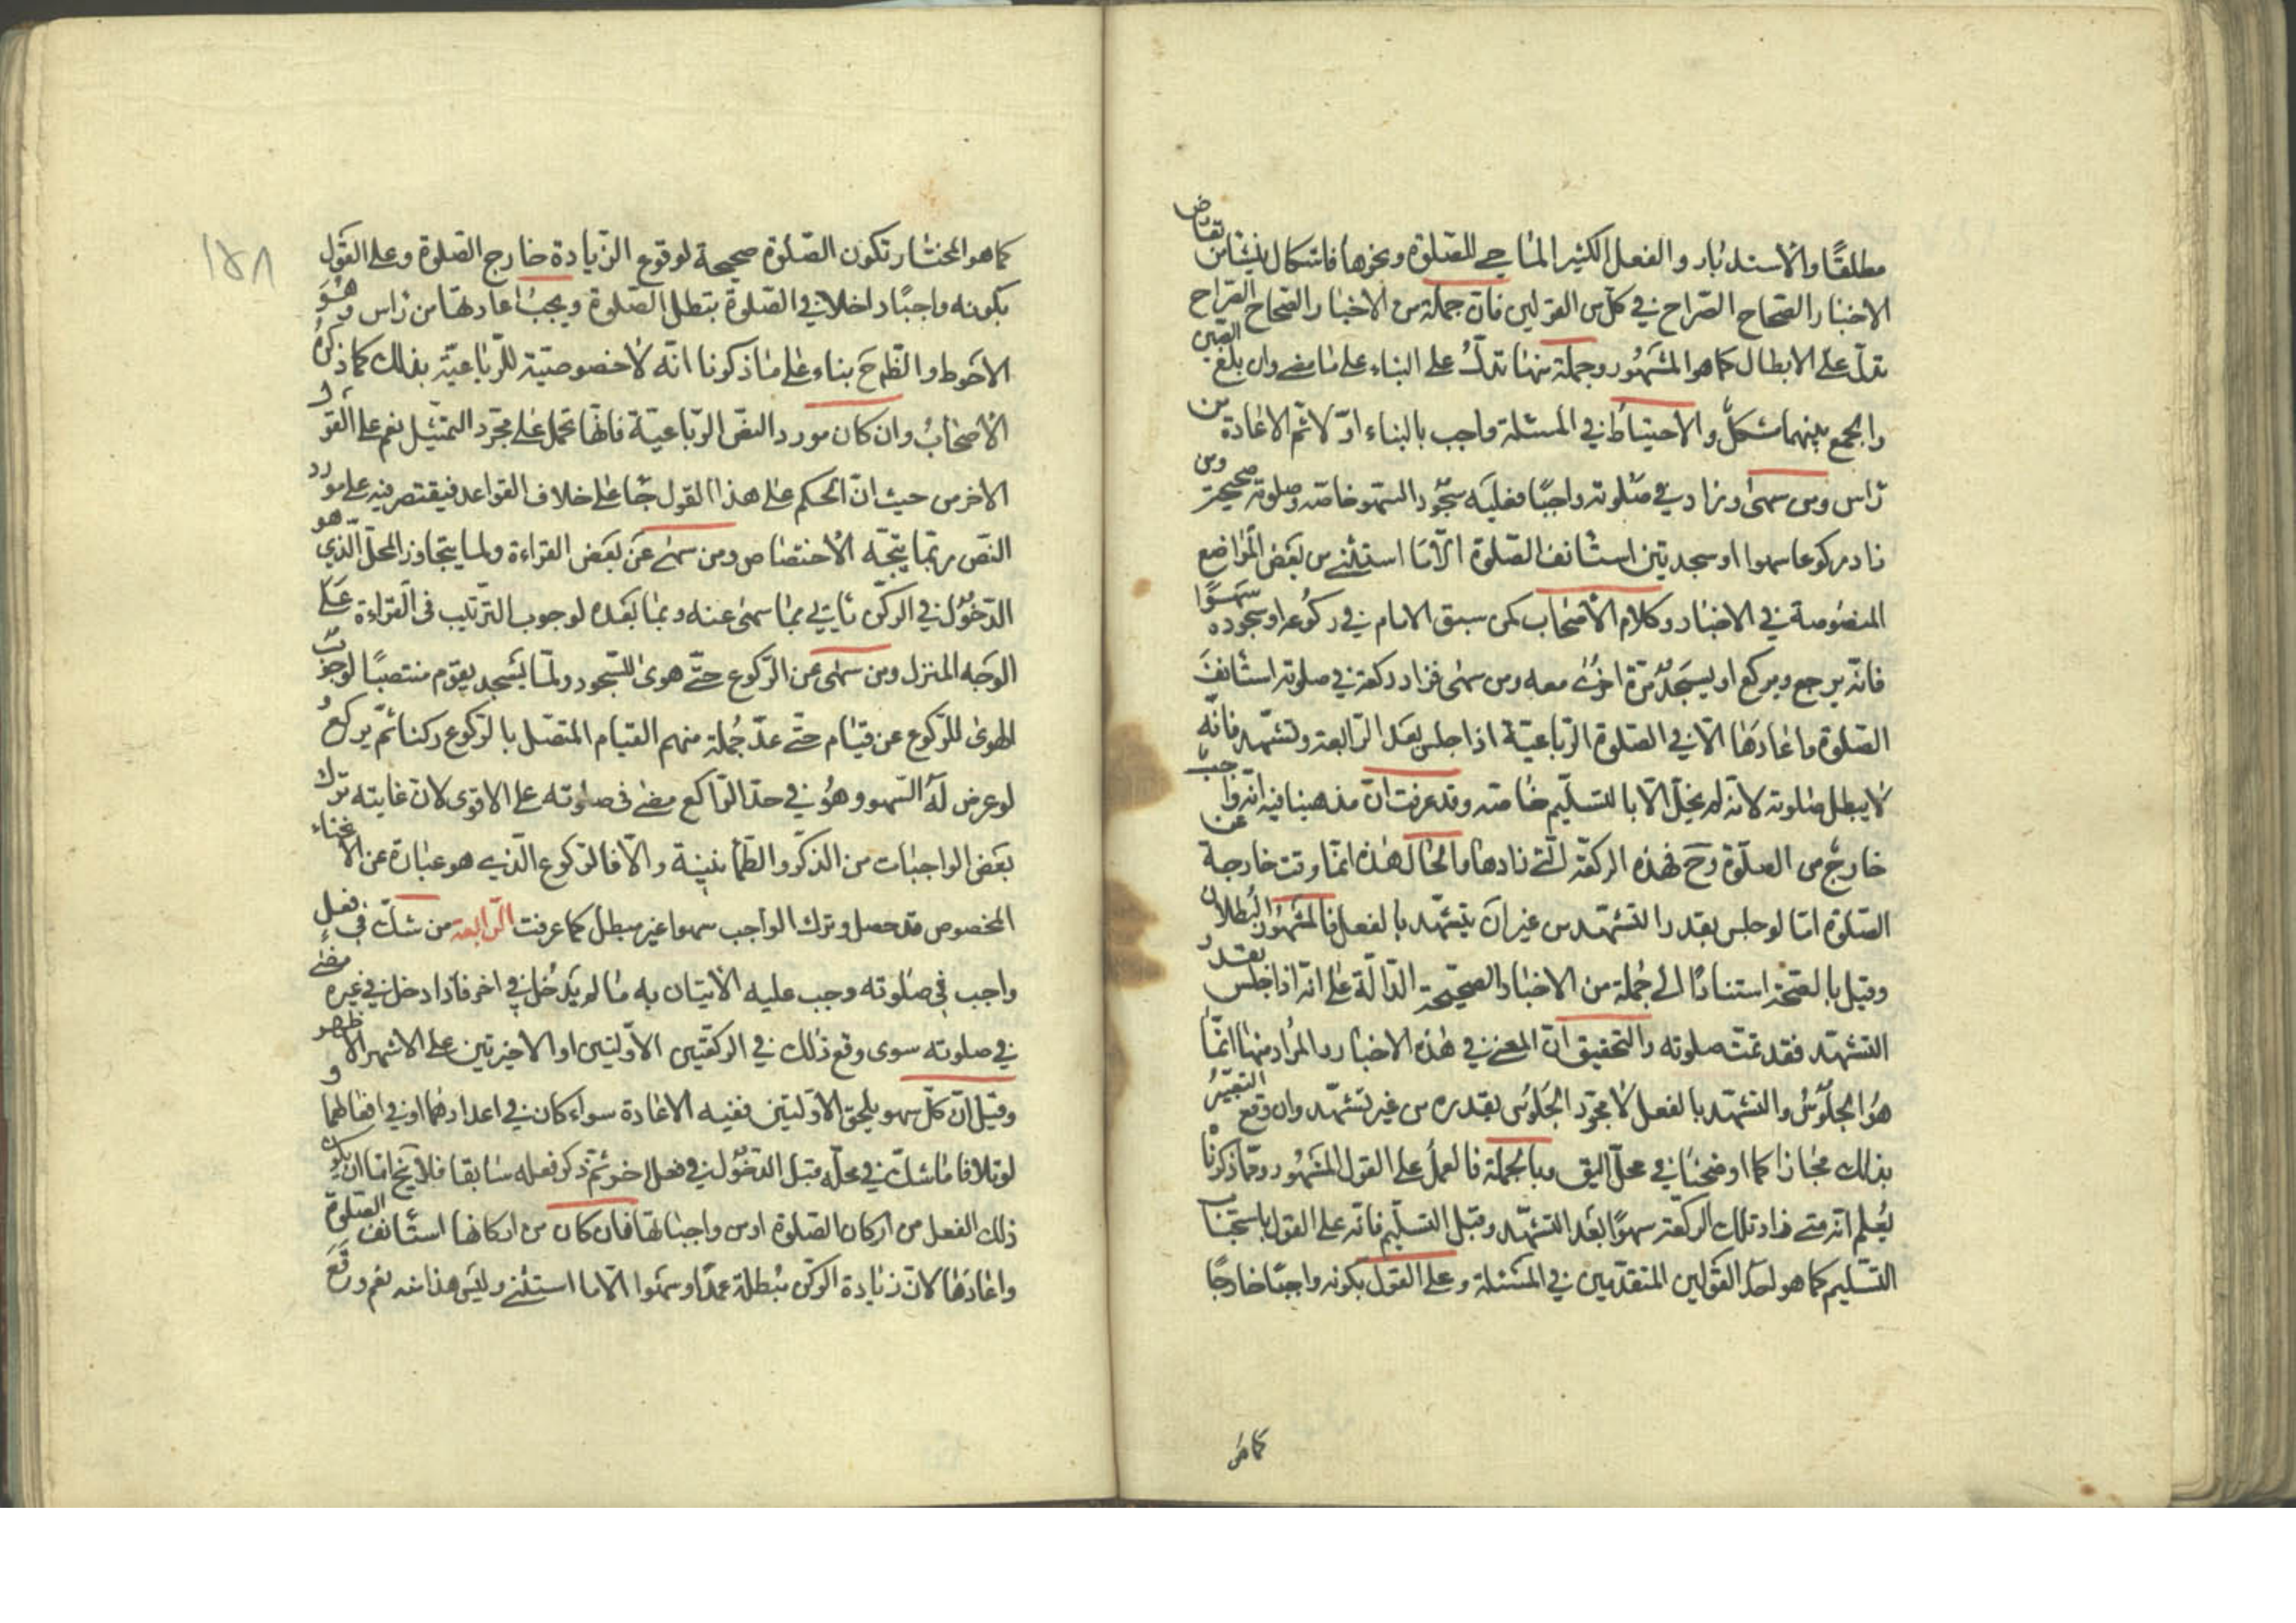 مطلقًا والاستدبار والفعل الكثير الماحي للصلوة ونحوها فاشكال ينشأ من تعارض
الاخبار الصحاح الصراح في كل من القولين فان جملة من الاخبار الصحاح الصراح
تدل على الابطال كما هو المشهور وجملة منها تدل على البناء على ما مضى وان بلغ الصين
والجمع بينهما مشكل والاحتياط في المسئلة واجب بالبناء اوّلا ثم الاعادة من
راس ومن سهى وزاد في صلوته واجبًا فعليه سجود السهو خاصة وصلوته صحيحة ومن
زاد ركوعا سهوا او سجدتين استأنف الصلوة الّا ما استثنى من بعض المواضع
المنصوصة في الاخبار وكلام الاصحاب كمن سبق الامام في ركوعه او سجوده سهوًا
فانه يرجع ويركع او يسجد مرة اخرى معه ومن سهى فزاد ركعة في صلوته استأنف
الصلوة واعادها الّا في الصلوة الرباعية اذا جلس بعد الرابعة وتشهد فانّه
لا يبطل صلوته لانه لم يخلّ الّا بالتسليم خاصة وقد عرفت انّ مذهبنا فيه انه واجب
خارج من الصلوة وح فهذه الركعة التي زادها والحال هذه انما وقعت خارجة عن
الصلوة امّا لو جلس بقدر التشهد من غير ان يتشهد بالفعل فالمشهور البطلان
وقيل بالصحة استنادًا الى جملة من الاخبار الصحيحة الدالّة على انه اذا جلس بقدر
التشهد فقد تمت صلوته والتحقيق انّ المعنى في هذه الاخبار والمراد منها انّما
هو الجلوس والتشهد بالفعل لا مجرد الجلوس بقدره من غير تشهد وان وقع التعبير
بذلك مجازا كما اوضحنا في محل اليق وبالجملة فالعمل على القول المشهور وممّا ذكرنا
يُعلم انه متى زاد تلك الركعة سهوًا بعد التشهد وقبل التسليم فانه على القول باستحباب
التسليم كما هو احد القولين المتقدمين في المسئلة وعلى القول بكونه واجبًا خارجًا
كما هو
١٥٨
كما هو المختار تكون الصلوة صحيحة لوقوع الزيادة خارج الصلوة وعلى القول
بكونه واجبًا داخلا في الصلوة بتطل الصلوة ويجب اعادتها من راس وهو
الاحوط والظ ح بناء على ما ذكرنا انّه لا خصوصيّة للرباعيّة بذلك كما ذكره
الاصحاب وان كان مورد النص الرباعية فانها تحمل على مجرّد التمثيل نعم على القول
الاخر من حيث انّ الحكم على هذا القول جا على خلاف القواعد فيقتصر فيه على مورد
النص ربما يتجّه الاختصاص ومن سهى عن بعض القراءة ولما يتجاوز المحلّ الّذي هو
الدخول في الركن ياتي بما سهى عنه وبما بعده لوجوب الترتيب في القراءة على
الوجه المنزل ومن سهى عن الركوع حتّى هوى للسجود ولمّا يسجد يقوم منتصبًا لوجوب
الهوى للركوع عن قيام حتّى عدّ جُملة منهم القيام المتصل بالركوع ركنا ثم يركع و
لو عرض له السهو وهو في حدّ الراكع مضى في صلوته على الاقوى لان غايته ترك
بعض الواجبات من الذكر والطمأنينة والّا فالركوع الّذي هو عبارة عن الانحناء
المخصوص قد حصل وترك الواجب سهوا غير مبطل كما عرفت الرّابعة من شكّ في فعل
واجب في صلوته وجب عليه الاتيان به ما لم يدخل في اخر فاذا دخل في غيره مضى
في صلوته سوى وقع ذلك في الركعتين الاوّلتين او الاخيرتين على الاشهر الاظهر
وقيل انّ كلّ سهو يلحق الاوّلتين ففيه الاعادة سواء كان في اعدادهما او في افعالهما و
لو تلافا ما شكّ في محلّه قبل الدخول في فعل اخر ثمّ ذكر فعله سابقا فلا يخ امّا ان يكون
ذلك الفعل من اركان الصلوة او من واجباتها فان كان من اركانها استأنف الصلوة
واعادها لانّ زيادة الركن مُبطلة عمدًا وسهوا الّا ما استثنى وليس هذا منه نعم ورَقَع